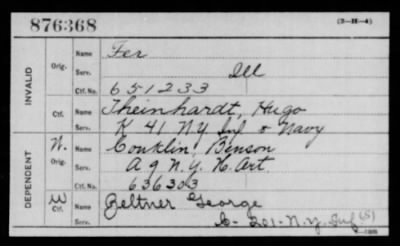 876368 (3—H—4)
INVALID
Orig. Name Fer
Serv. Ill
Ctf. No. 651233
Ctf. Name Theinhardt, Hugo
Serv. K 41 N.Y. Inf & Navy
DEPENDENT
W. Orig. Name Conklin, Benson
Serv. A 9 N.Y. H. Art.
Ctf. No. 636303
W Ctf. Name Peltner George
Serv. G- 201- N.Y. Inf (S)